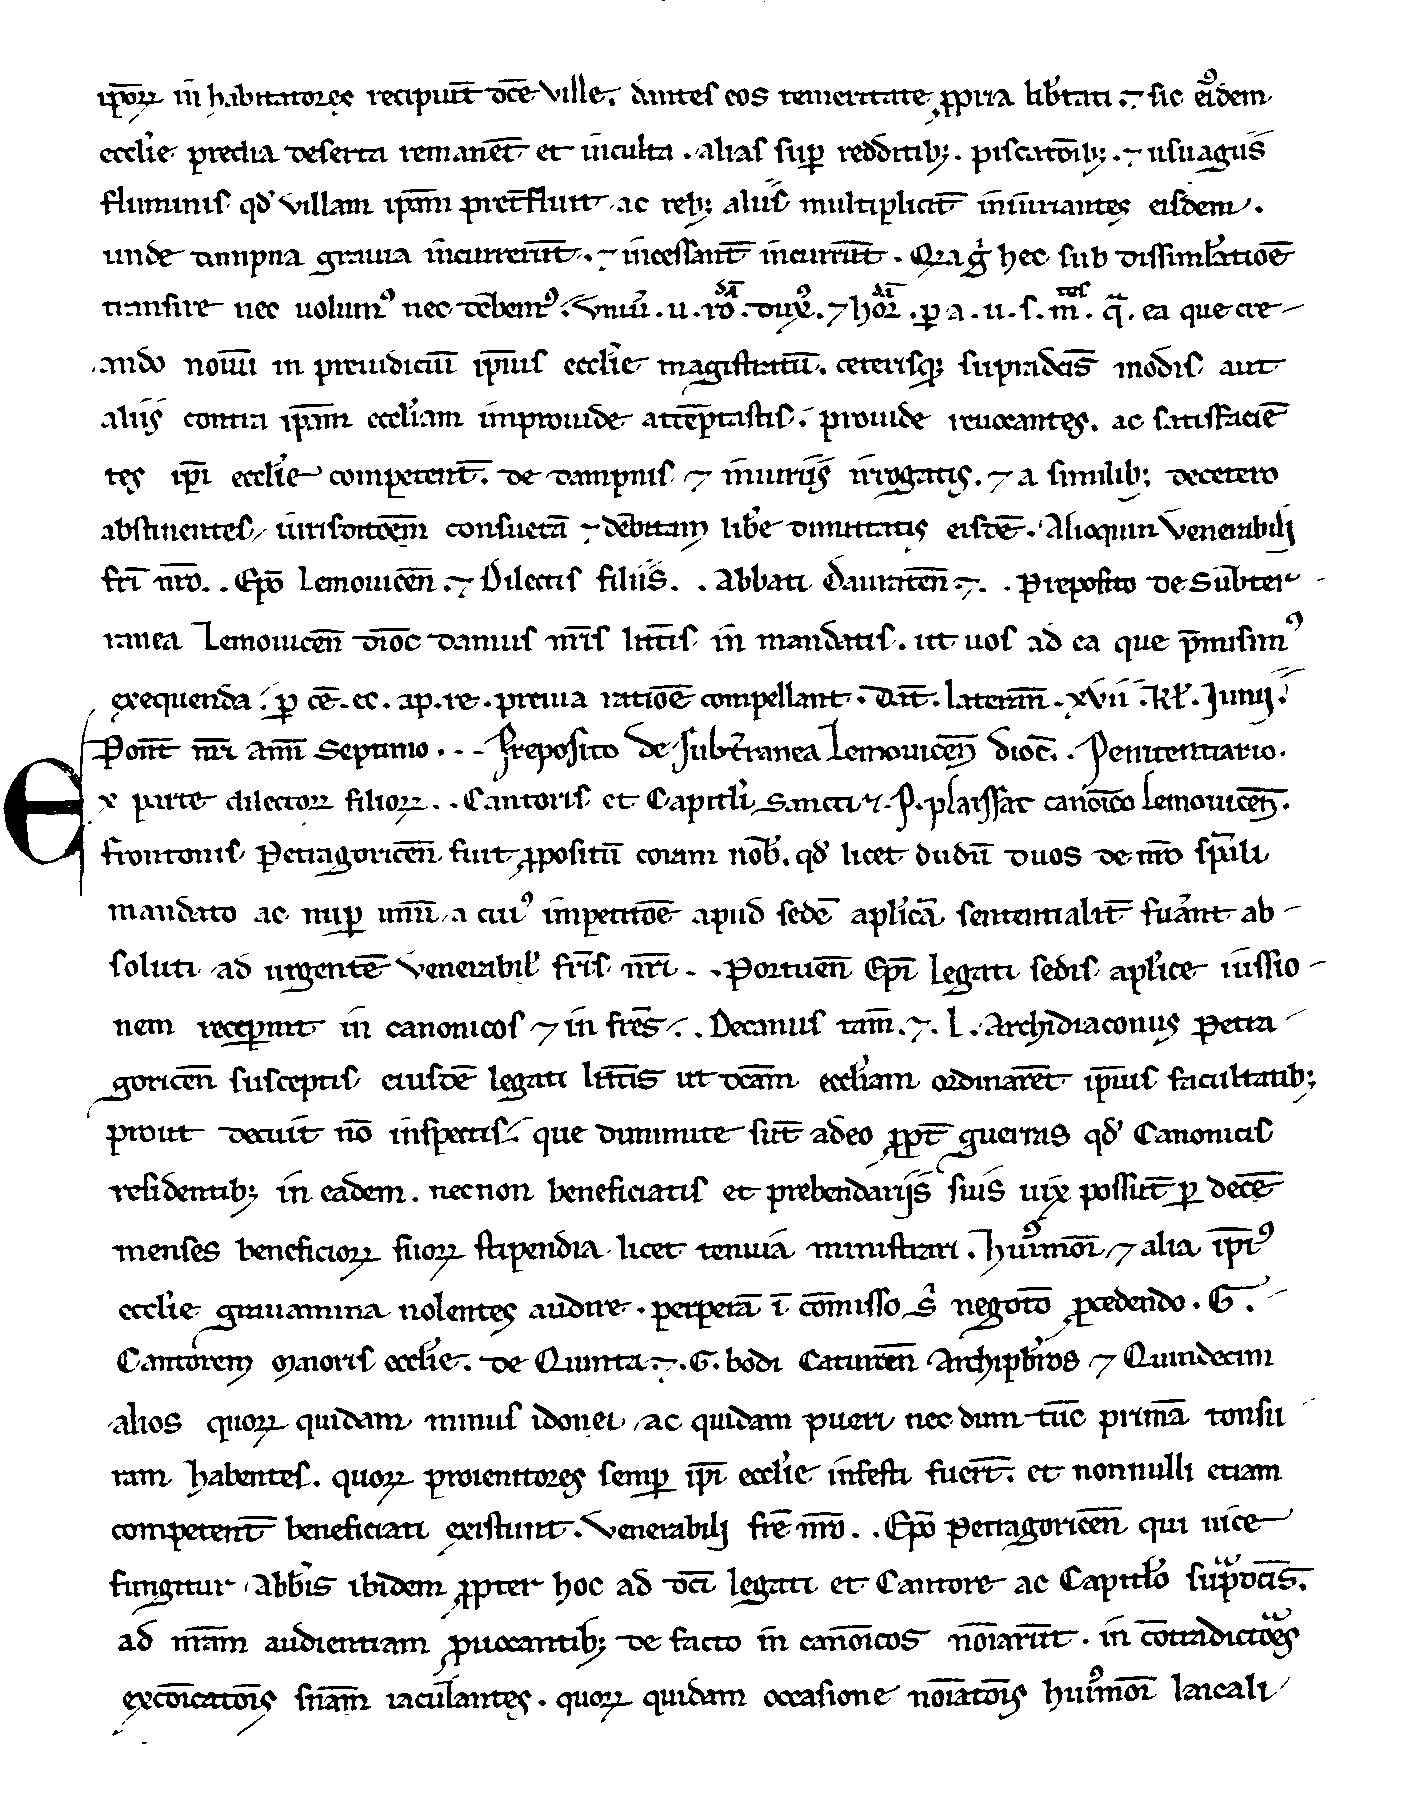 ip̅oꝝ in habitatores recipiu̅t dc̅e ville. dantes eos temeritate ꝓpria lib̅tati ⁊ sic eiꝰdem
eccl̅ie predia deserta remane̅t et inculta . alias sup̱ redditibꝫ . piscato̅ibꝫ . ⁊ usuagiis
fluminis qd̓ villam ip̅am pret̅fluit ac rebꝫ aliis multiplicit̅ iniuriantes eisdem .
unde dampna gravia incurreru̅t . ⁊ incessant̅ incurru̅t . Quia g̓ hec sub dissimulat̅ioe̅
transire nec uolumꝰ nec debemꝰ . Vniu̅ . u . ro̅ . duxꝰ . ⁊ hor̅ . ꝑ a . u . s . m̅ . q̅ . ea que cre
ando nouu̅ in preiudiciu̅ ip̅ius eccl̅ie magistratu̅ . ceterisqꝫ supradc̅is modis aut
aliis contra ip̅am eccl̅iam improuide atte̅ptastis . prouide reuocantes . ac satisfacie̅
tes ip̅i eccl̅ie competent̅ . de dampnis ⁊ iniuriis irrogatis . ⁊ a similibꝫ decetero
abstinentes iurisdictoe̅m consueta̅ ⁊ debitam lib̅e dimittatis eisde̅ . Alioquin Venerabili
fr̅i nr̅o . . Ep̅o Lemouicen̅ . ⁊ Dilectis filiis . . Abbati Dauraten̅ ⁊ . . Preposito de Subter
ranea Lemouicen̅ dioc̅ damus nr̅is litt̅is in mandatis . ut uos ad ea que p̅misimꝰ
exequenda . ꝑ ce̅ . ec . ap . re . preuia ratioe̅ compellant . Dat̅ . lateran̅ . xvii . kl̅ . Junij .
Pont̅ nr̅i ann̅ Septimo . . - Preposito de Subt̅ranea Lemouicen̅ dioc̅ . . Penitentiario .
Ex parte dilectoꝝ filioꝝ . . Cantoris et Capitl̅i Sancti ⁊ . P . plaissat cano̅ico Lemouicen̅ .
frontonis Petragoricen̅ fuit ꝓpositu̅ coram nob̅ . qd̓ licet dudu̅ duos de nr̅o sp̅ali
mandato ac nup̱ unu̅ a cuiꝰ impetitoe̅ apud sede̅ apl̅ica̅ sententialit̅ fuerant ab
soluti ad urgente̅ Venerabil̅ fr̅is nr̅i . . Portuen̅ Ep̅i legati sedis apl̅ice iussio
nem receperunt in canonicos ⁊ in fr̅es . . Decanus tam̅ . ⁊ . l . Archidiaconus Petra
goricen̅ susceptis eiusde̅ legati litt̅is ut dc̅am eccl̅iam ordinare̅t ip̅ius facultatibꝫ
prout decuit no̅ inspectis . que diminute su̅t adeo ꝓpt̅ guerras qd̓ Canonicis
residentibꝫ in eadem . necnon beneficiatis et prebendarijs suis uix possu̅t ꝑ dece̅
menses beneficioꝝ suoꝝ stipendia licet tenuia ministrari . huiꝰmoi̅ ⁊ alia ip̅iꝰ
eccl̅ie grauamina nolentes audire . perpera̅ i̅ co̅misso s̓ negoto̅ ꝓcedendo . G .
Cantorem Maioris eccl̅ie . de Quinta ⁊ . G . bodi Caturcen̅ Archipb̅ros ⁊ Quindecim
alios quoꝝ quidam minus idonei ac quidam pueri nec dum tu̅c prima̅ tonsu
ram habentes . quoꝝ proienitores semp̱ ip̅i eccl̅ie infesti fuer̅t . et nonnulli etiam
competent̅ beneficiati existunt . Venerabili fr̅e nr̅o . . Ep̅o Petragoricen̅ qui uice
fungitur Abb̅is ibidem ꝓpter hoc ad dc̅i legati et Cantore ac Capitl̅o sup̅dc̅is .
ad nr̅am audientiam ꝓuocantibꝫ de facto in cano̅icos no̅iaru̅t . in co̅tradictoe̅s
exco̅icatois̅ sn̅iam iaculantes . quoꝝ quidam occasione no̅iatois̅ huiꝰmoi̅ laicali